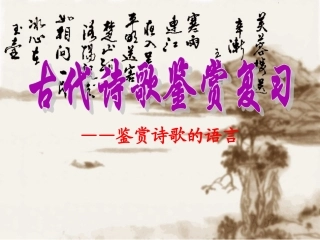 芙蓉楼送辛渐
寒雨连江夜入吴
平明送客楚山孤
洛阳亲友如相问
一片冰心在玉壶
古代诗歌鉴赏复习
——鉴赏诗歌的语言